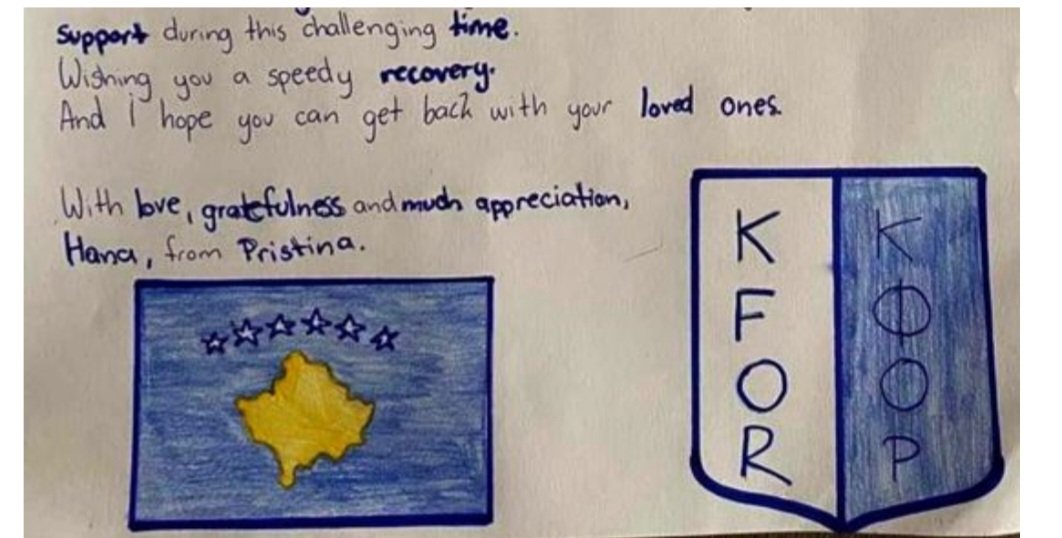 support during this challenging time.
Wishing you a speedy recovery.
And I hope you can get back with your loved ones.
With love, gratefulness and much appreciation,
Hana, from Pristina.
K
F
O
R
К
Ф
О
Р